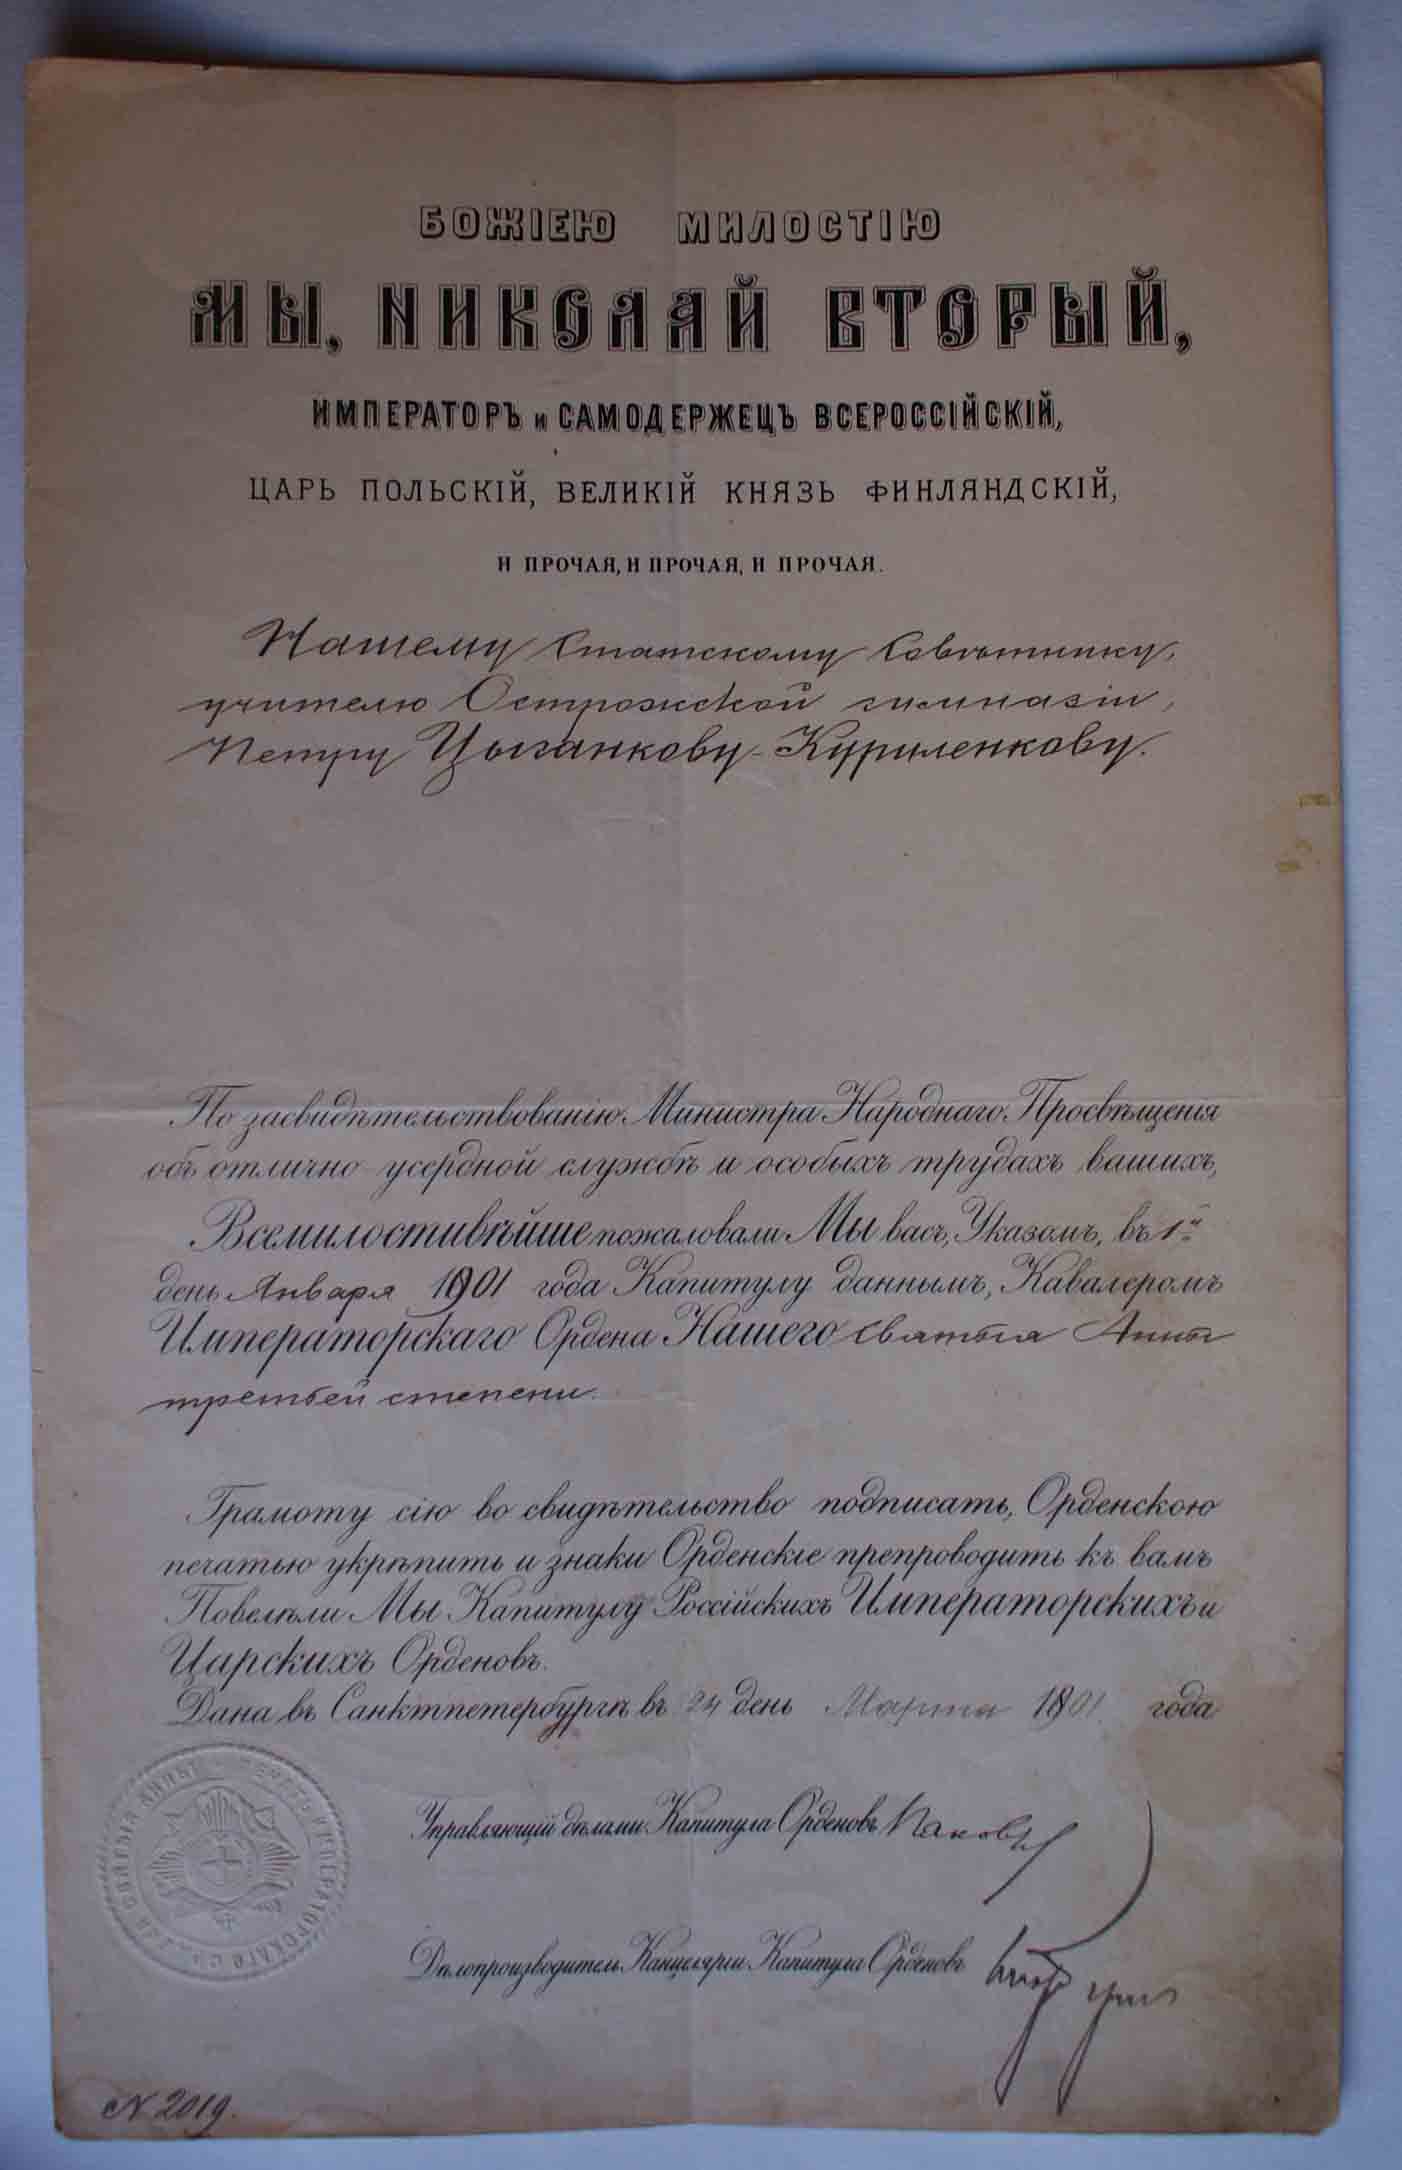 БОЖІЕЮ МИЛОСТІЮ
МЫ, НИКОЛАЙ ВТОРЫЙ,
ИМПЕРАТОРЪ и САМОДЕРЖЕЦЪ ВСЕРОССІЙСКІЙ,
ЦАРЬ ПОЛЬСКІЙ, ВЕЛИКІЙ КНЯЗЬ ФИНЛЯНДСКІЙ,
И ПРОЧАЯ, И ПРОЧАЯ, И ПРОЧАЯ.
Нашему Статскому Совѣтнику,
учителю Острожской гимназіи,
Петру Цыганкову-Куриленкову.
По засвидѣтельствованію Министра Народнаго Просвѣщенія
объ отлично-усердной службѣ и особыхъ трудахъ вашихъ,
Всемилостивѣйше пожаловали Мы васъ, Указомъ, въ 1й
день Января 1901 года Капитулу даннымъ, Кавалеромъ
Императорскаго Ордена Нашего Святыя Анны
третьей степени.
Грамоту сію во свидѣтельство подписать, Орденскою
печатью укрѣпить и знаки Орденскіе препроводить къ вамъ
Повелѣли Мы Капитулу Россійскихъ Императорскихъ и
Царскихъ Орденовъ.
Дана въ Санктпетербургѣ въ 24 день Марта 1901 года
Управляющій дѣлами Капитула Орденовъ
Дѣлопроизводитель Канцеляріи Капитула Орденовъ
N 2019.